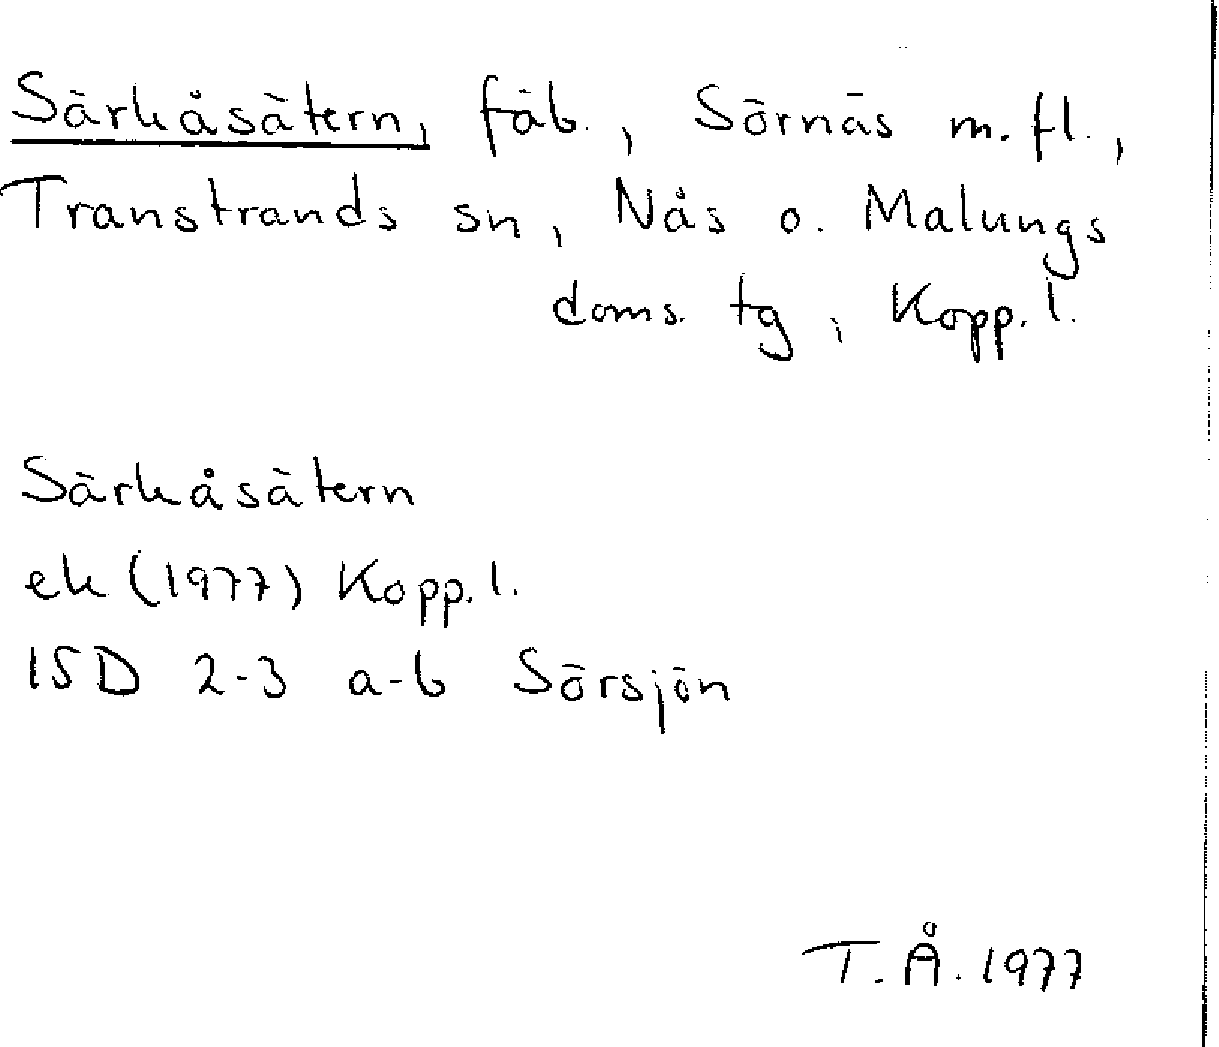 Särkåsätern, fäb., Sörnäs m. fl.,
Transtrands sn, Nås o. Malungs
doms. tg, Kopp. l.
Särkåsätern
ek (1977) Kopp. l.
15D 2-3 a-b Sörsjön
T. Å. 1977